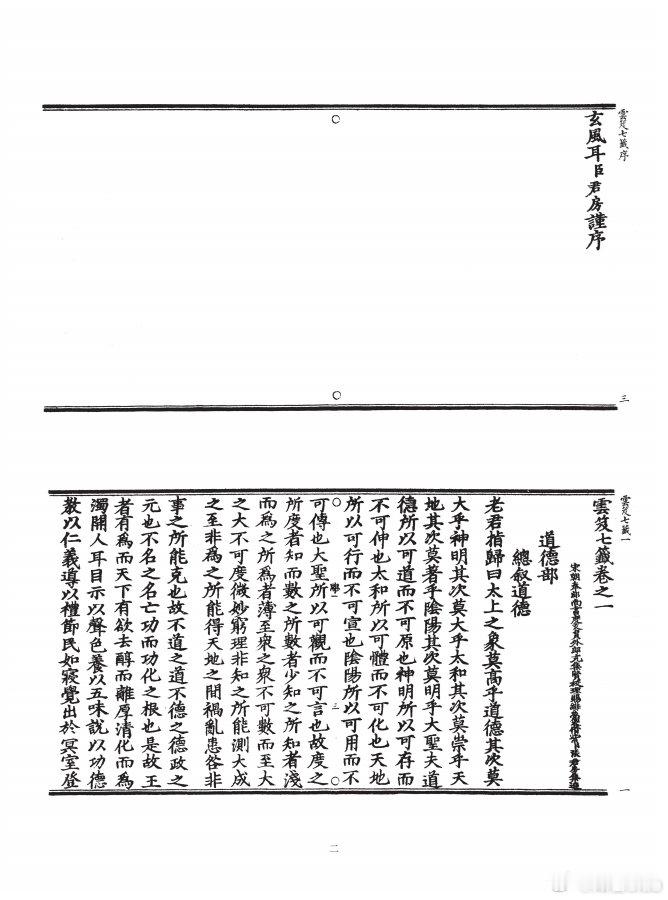 雲笈七籤序
玄風耳臣君房謹序
三
雲笈七籤一
雲笈七籤卷之一
宋朝奉郎尚書度支員外郎充集賢校理賜緋魚袋借紫臣張君房集進
道德部
總叙道德
老君指歸曰太上之象莫高乎道德其次莫
大乎神明其次莫大乎太和其次莫崇乎天
地其次莫著乎陰陽其次莫明乎大聖夫道
德所以可道而不可原也神明所以可存而
不可伸也太和所以可體而不可化也天地
所以可行而不可宣也陰陽所以可用而不
可傳也大聖所以可觀而不可言也故度之
所度者知而數之所數者少知之所知者淺
而為之所為者薄至衆之衆不可數而至大
之大不可度微妙窮理非知之所能測大成
之至非為之所能得天地之間禍亂患咎非
事之所能克也故不道之道不德之德政之
元也不名之名亡功而功化之根也是故王
者有為而天下有欲去醇而離厚清化而為
濁開人耳目示以聲色養以五味說以功德
教以仁義導以禮節民如寢覺出於冥室登
一
二